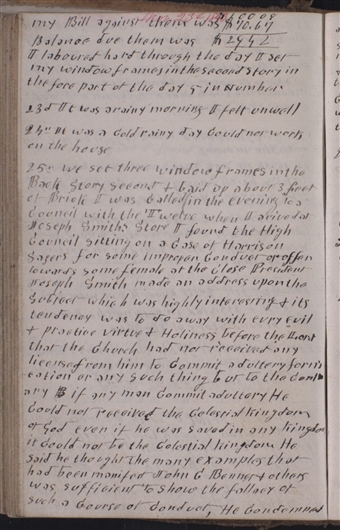 my Bill against them was $70.67
Balance due them was $24,42
I laboured hard through the day I set
my window frames in the second story in
the fore part of the day 5 in number
23d It was a rainy morning I felt unwell
24th It was a cold rainy day Could not work
on the house
25th We set three window frames in the
Back Story second & laid up about 3 feet
of Brick I was Called in the evening to a
Council with the Twelve when I arived at
Joseph Smiths Store I found the High
Council sitting on a Case of Harrison
Sagers for some improper Conduct or offer
towards some female at the Close President
Joseph Smith made an address upon the
subject which was highly interesting & its
tendency was to do away with evry evil
& practice virtue & Holiness before the Lord
that the Church had not received any
license from him to Commit adultery forni
cation or any such thing but to the Contr
ary if any man Commit adultery He
Could not receive the Celestial kingdom
of God even if he was saved in any kingdom
it could not be the Celestial kingdom He
said he thought the many examples that
had been manifest John C Bennet & others
was sufficient to show the fallacy of
such a Course of Conduct, He Condemned